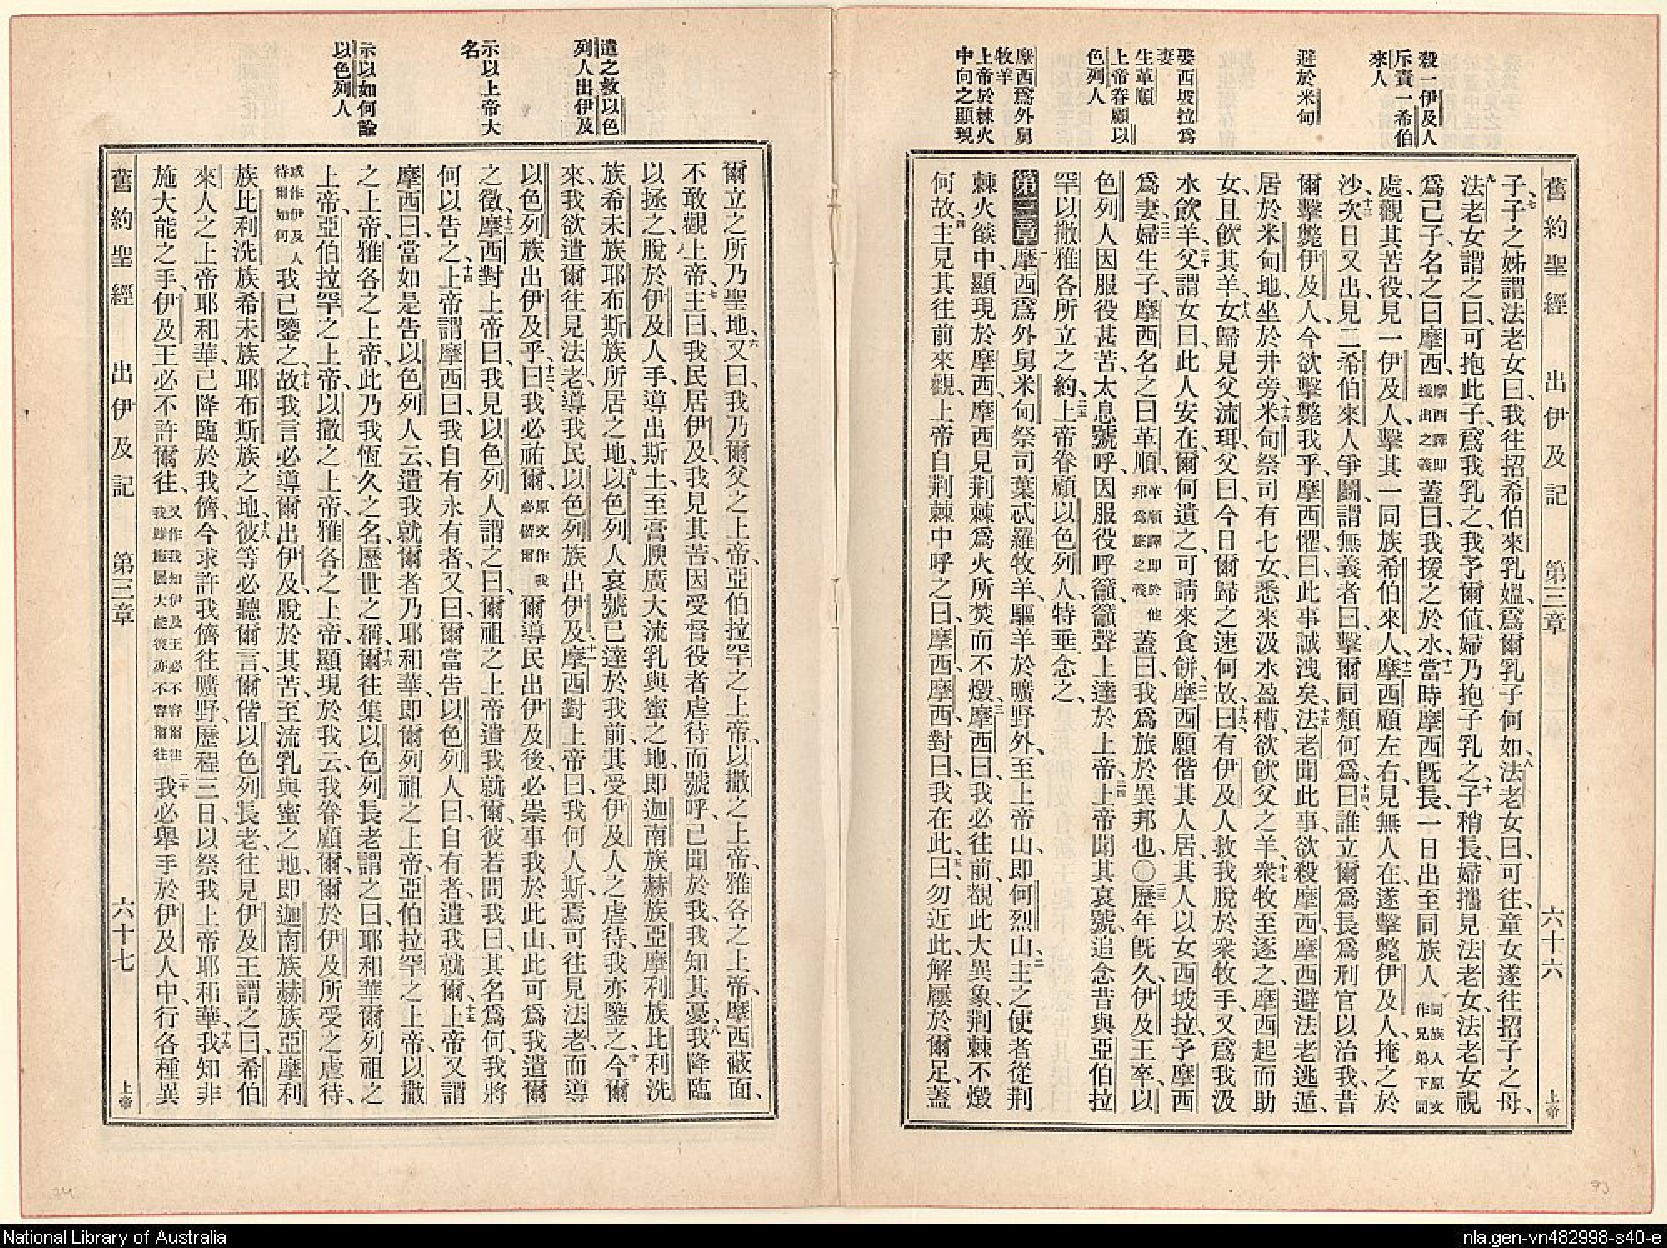 殺一伊及人
斥責一希伯
來人
避於米甸
娶西坡拉爲
妻
生革順
上帝眷顧以
色列人
摩西爲外舅
牧羊
上帝於棘火
中向之顯現
舊約聖經 出伊及記 第三章 六十六 上帝
子、子之姊謂法老女曰、我往招希伯來乳媼、爲爾乳子何如、法老女曰、可往、童女遂往招子之母、
法老女謂之曰、可抱此子、爲我乳之、我予爾値、婦乃抱子乳之、子稍長、婦攜見法老女、法老女視
爲己子、名之曰摩西、摩西譯即援出之義蓋曰、我援之於水、當時摩西旣長、一日出至同族人同族人原文作兄弟下同
處、觀其苦役、見一伊及人、擊其一同族希伯來人、摩西顧左右、見無人在、遂擊斃伊及人、掩之於
沙、次日又出、見二希伯來人爭鬭、謂無義者曰、擊爾同類何爲、曰、誰立爾爲長爲刑官以治我、昔
爾擊斃伊及人、今欲擊斃我乎、摩西懼曰、此事誠洩矣、法老聞此事、欲殺摩西、摩西避法老逃遁、
居於米甸地、坐於井旁、米甸祭司有七女、悉來汲水盈槽、欲飮父之羊、衆牧至逐之、摩西起而助
女、且飮其羊、女歸見父流珥、父曰、今日爾歸之速何故、曰、有伊及人救我脫於衆牧手、又爲我汲
水飮羊、父謂女曰、此人安在、爾何遺之、可請來食餅、摩西願偕其人居、其人以女西坡拉、予摩西
爲妻、婦生子、摩西名之曰革順、革順譯即於他邦爲旅之義蓋曰、我爲旅於異邦也○歷年旣久、伊及王卒、以
色列人因服役甚苦、太息號呼、因服役呼籲、籲聲上達於上帝、上帝聞其哀號、追念昔與亞伯拉
罕以撒雅各所立之約、上帝眷顧以色列人、特垂念之、
第三章摩西爲外舅米甸祭司葉忒羅牧羊、驅羊於曠野外、至上帝山、即何烈山、主之使者從荆
棘火燄中、顯現於摩西、摩西見荆棘爲火所焚而不燬、摩西曰、我必往前、觀此大異象、荆棘不燬
何故、主見其往前來觀、上帝自荆棘中呼之曰、摩西摩西、對曰、我在此、曰、勿近此、解屨於爾足、蓋
遣之救以色
列人出伊及
示以上帝大
名
示以如何諭
以色列人
爾立之所乃聖地、又曰、我乃爾父之上帝、亞伯拉罕之上帝、以撒之上帝、雅各之上帝、摩西蔽面、
不敢觀上帝、主曰、我民居伊及、我見其苦、因受督役者虐待而號呼、已聞於我、我知其憂、我降臨
以拯之、脫於伊及人手、導出斯土、至膏腴廣大流乳與蜜之地、即迦南族赫族亞摩利族比利洗
族希未族耶布斯族所居之地、以色列人哀號、已達於我前、其受伊及人之虐待、我亦鑒之、今爾
來、我欲遣爾往見法老、導我民以色列族出伊及、摩西對上帝曰、我何人斯、焉可往見法老、而導
以色列族出伊及乎、曰、我必祐爾、原文作我必偕爾爾導民出伊及後、必崇事我於此山、此可爲我遣爾
之徵、摩西對上帝曰、我見以色列人謂之曰、爾祖之上帝遣我就爾、彼若問我曰、其名爲何、我將
何以告之、上帝謂摩西曰、我自有永有者、又曰、爾當告以色列人曰、自有者、遣我就爾、上帝又謂
摩西曰、當如是告以色列人云、遣我就爾者、乃耶和華、即爾列祖之上帝、亞伯拉罕之上帝、以撒
之上帝、雅各之上帝、此乃我恆久之名、歷世之稱、爾往集以色列長老、謂之曰、耶和華爾列祖之
上帝、亞伯拉罕之上帝、以撒之上帝、雅各之上帝、顯現於我、云、我眷顧爾、爾於伊及所受之虐待、
或作伊及人待爾如何我已鑒之、故我言必導爾出伊及、脫於其苦、至流乳與蜜之地、即迦南族赫族亞摩利
族比利洗族希未族耶布斯族之地、彼等必聽爾言、爾偕以色列長老、往見伊及王、謂之曰、希伯
來人之上帝耶和華、已降臨於我儕、今求許我儕往曠野、歷程三日、以祭我上帝耶和華、我知非
施大能之手、伊及王必不許爾往、又作我知伊及王必不容爾往我雖施展大能彼亦不容爾往我必舉手於伊及人中、行各種異
舊約聖經 出伊及記 第三章 六十七 上帝
National Library of Australia
nla.gen-vn482998-s40-e